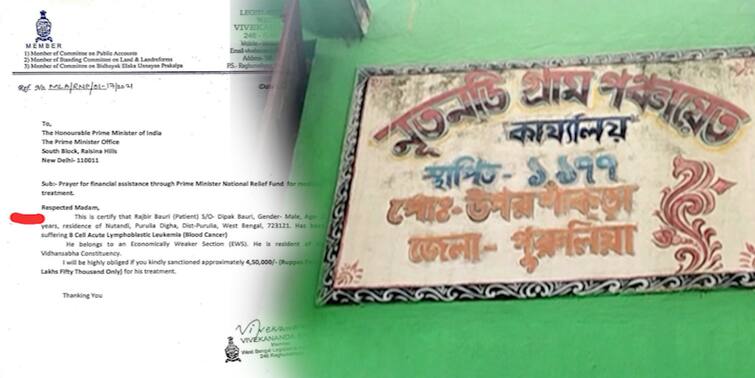 MEMBER
1) Member of Committee on Public Accounts
2) Member of Standing Committee on Land & Landreforms
3) Member of Committee on Bidhayak Elaka Unnayan Prakalpa
Ref. No MLA/RNP/01-17/2021
To,
The Honourable Prime Minister of India
The Prime Minister Office
South Block, Raisina Hills
New Delhi- 110011
Sub:- Prayer for financial assistance through Prime Minister National Relief Fund for
treatment.
Respected Madam,
This is certify that Rajbir Bauri (Patient) S/O- Dipak Bauri, Gender- Male,
years, residence of Nutandi, Purulia Digha, Dist-Purulia, West Bengal, 723121. Has
suffering B Cell Acute Lymphoblestic Leukemia (Blood Cancer)
He belongs to an Economically Weaker Section (EWS). He is resident
Vidhansabha Constituency.
I will be highly obliged if you kindly sanctioned approximately 4,50,000/- (Ruppes
Lakhs Fifty Thousand Only) for his treatment.
Thanking You
VIVEKANANDA
Member
West Bengal
246
নূতনডি গ্রাম পঞ্চায়েত
কার্য্যালয়
স্থাপিত - ১৯৭৭
পোঃ- উপর পাঁকড়া
জেলা- পুরুলিয়া